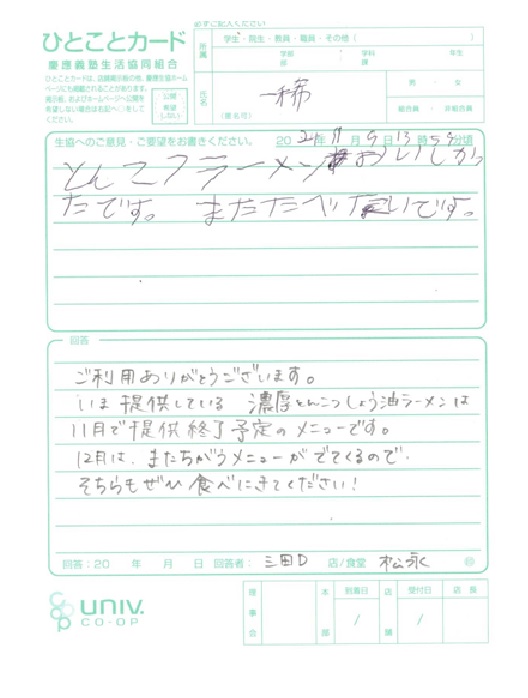 必ずご記入ください
ひとことカード
慶應義塾生活協同組合
ひとことカードは、店舗掲示板の他、慶應生協ホームページにも掲載されることがあります。掲示板、およびホームページへ公開を希望しない場合は右記へ○をしてください。
公開希望しない
所属
学生・院生・教員・職員・その他（　　　）
学部 学科 年生
氏名
（匿名可）
男・女
組合員・非組合員
生協へのご意見・ご要望をお書きください。 20 年 11月 9日 13時 59分頃
とんこつラーメンおいしかっ
たです。 またたべたいです。
回答
ご利用ありがとうございます。
いま提供している 濃厚とんこつしょう油ラーメンは
11月で提供終了予定のメニューです。
12月は、またちがうメニューがでてくるので、
そちらもぜひ食べにきてください！
回答：20　年　月　日 回答者： 三田D 店/食堂 松永 ㊞
UNIV.
CO-OP
理事会 本部 到着日 / 店舗 受付日 / 店長